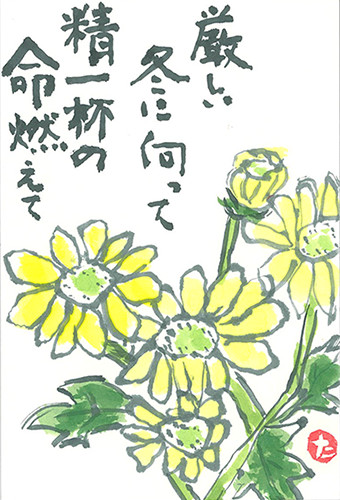 厳しい
冬に向って
精一杯の
命燃えて
た